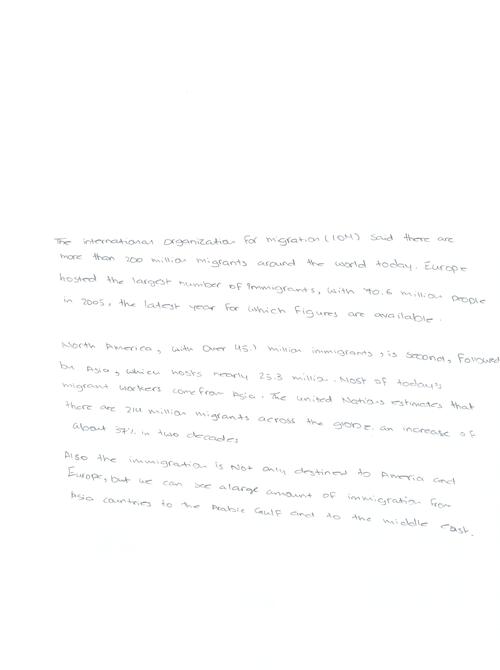 The international organization for migration (IOM) said there are
more than 200 million migrants around the world today. Europe
hosted the largest number of immigrants, with 70.6 million people
in 2005, the latest year for which figures are available.
North America, with over 45.1 million immigrants, is second, followed
by Asia, which hosts nearly 25.3 million. Most of today's
migrant workers come from Asia. The united Nations estimates that
there are 214 million migrants across the globe. an increase of
about 37% in two decades
Also the immigration is Not only destined to America and
Europe, but we can see a large amount of immigration from
Asia countries to the Arabic Gulf and to the middle east.